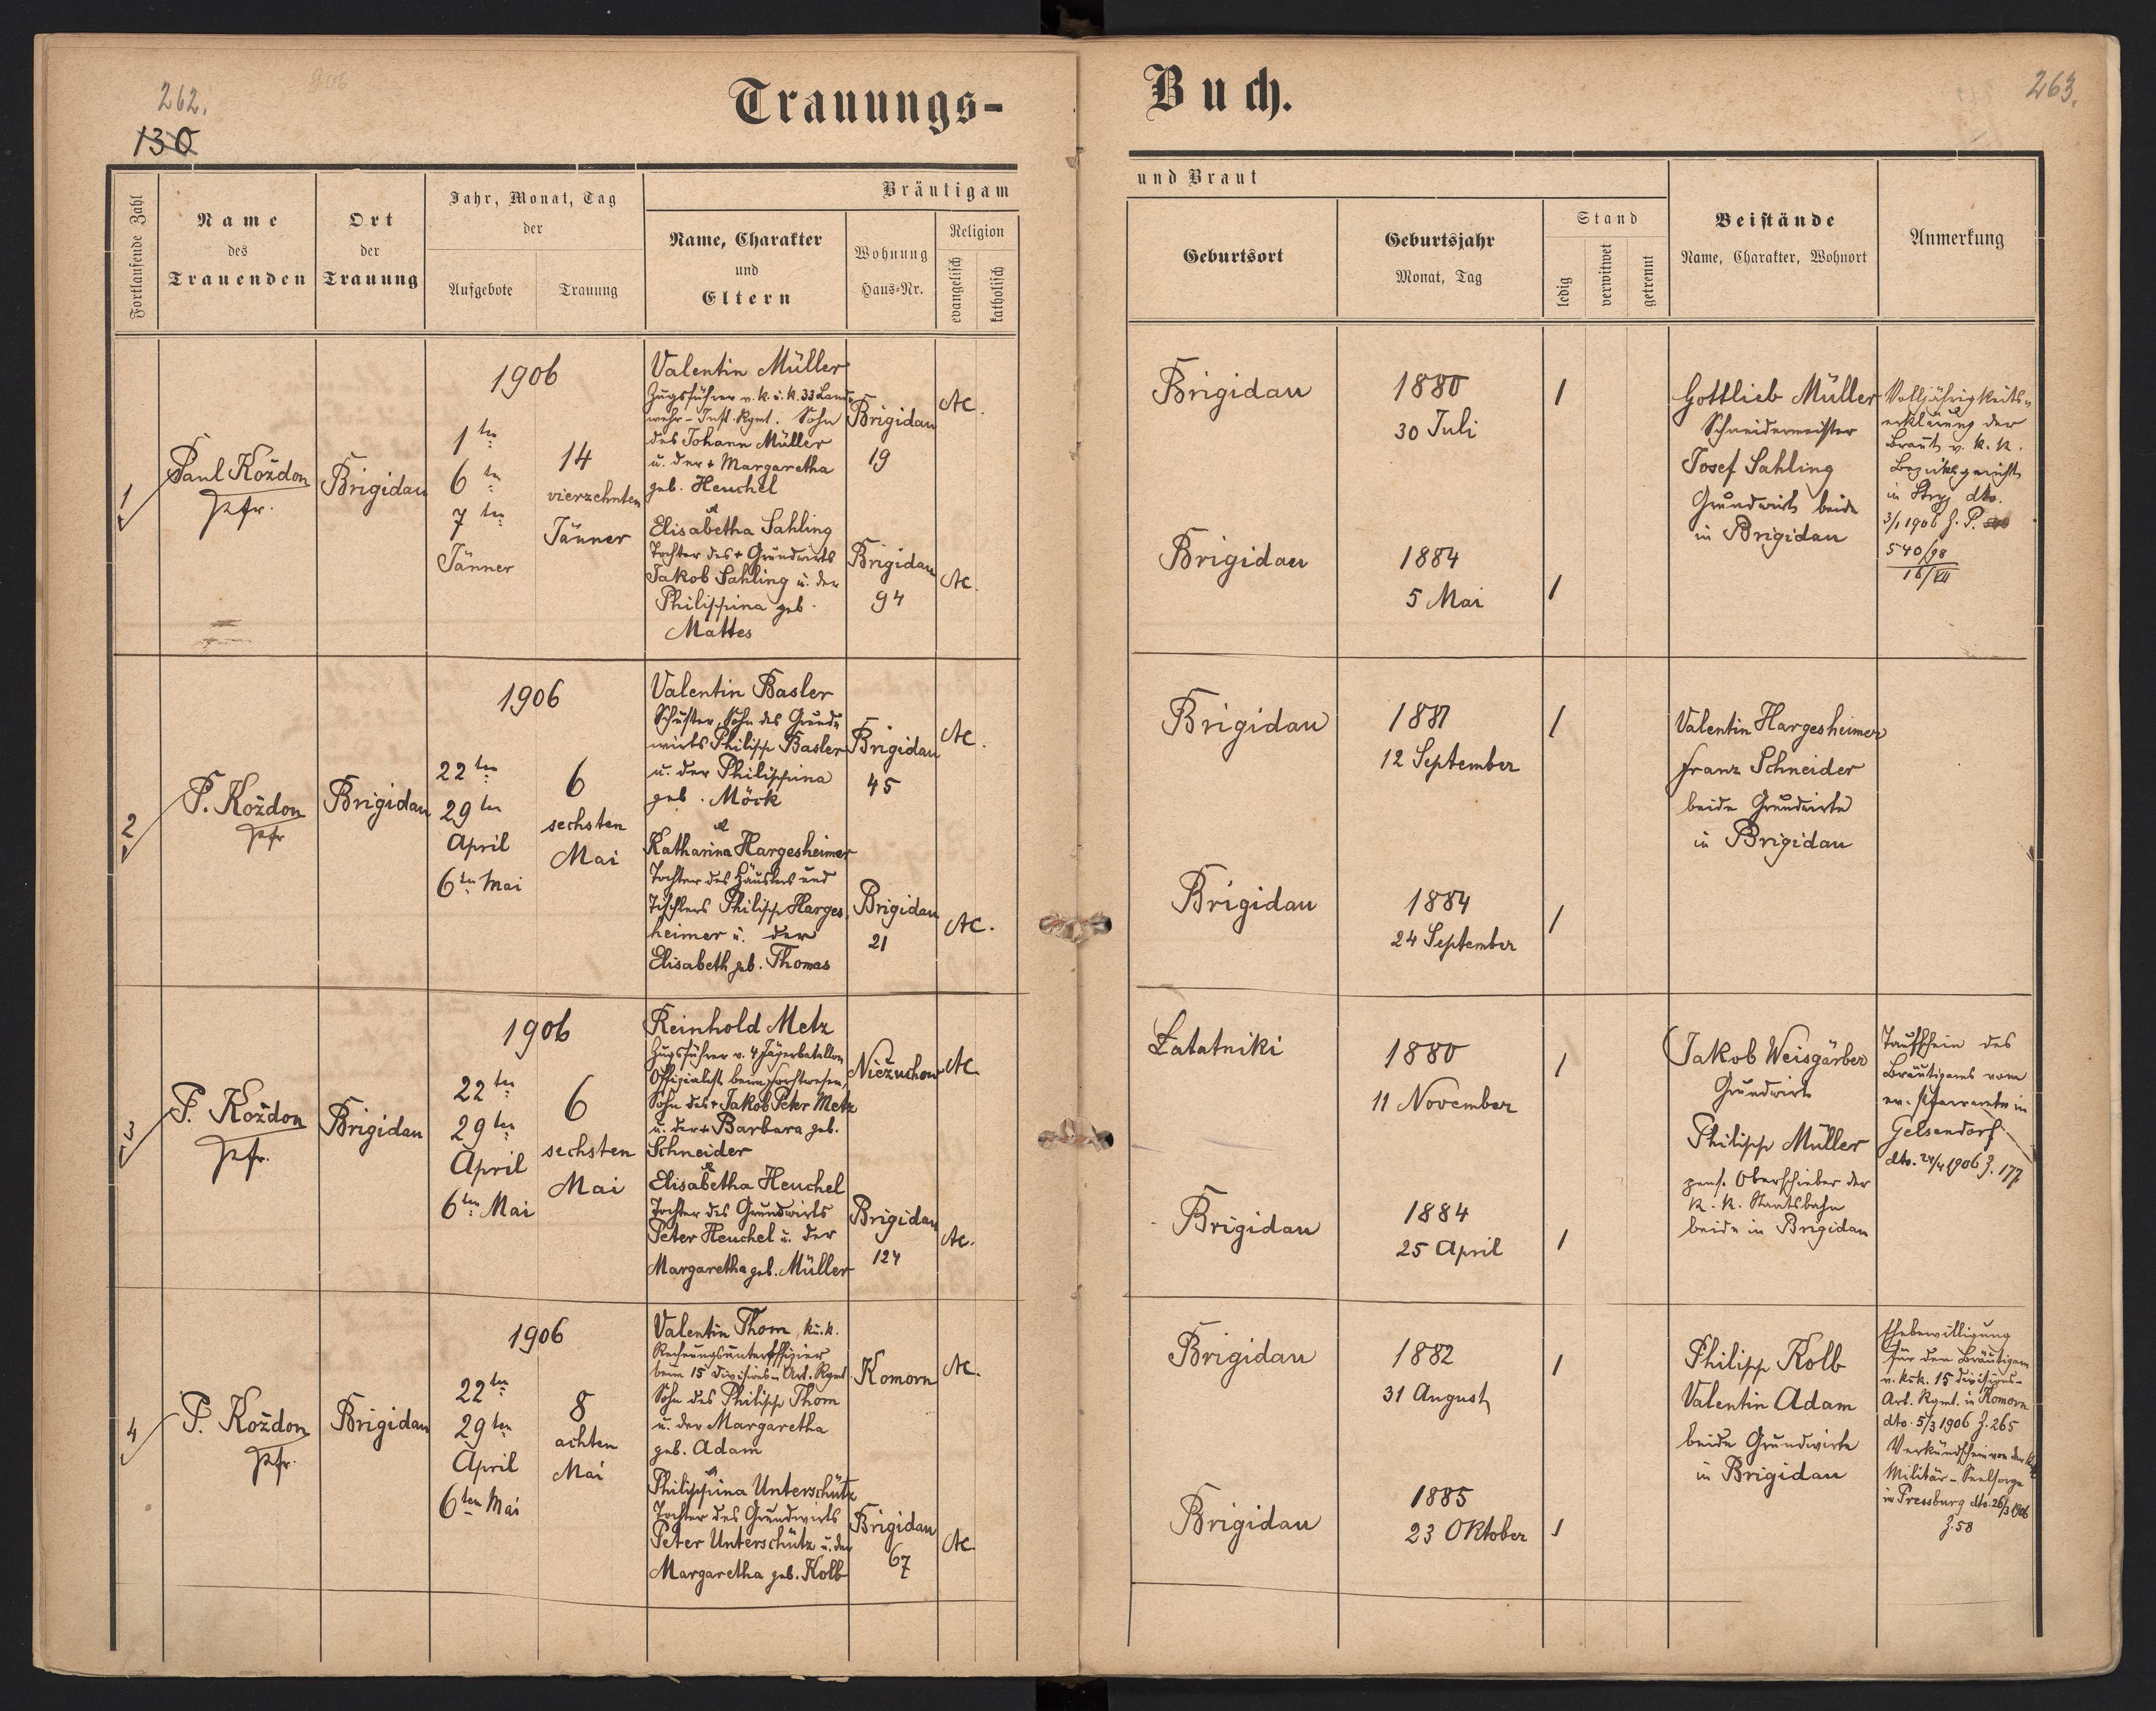 262.
906
130
Trauungs-
Fortlaufende Zahl
Name
des
Trauenden
Ort
der
Trauung
Jahr, Monat, Tag
der
Aufgebote
Trauung
Bräutigam
Name, Charakter
und
Eltern
Wohnung
Haus-Nr.
Religion
evangelisch
katholisch
1
Paul Koždon
Pfr.
Brigidau
1906
1ten
6ten
7ten
Jänner
14
vierzehnten
Jänner
Valentin Müller
Zugsführer v. k. u. k. 33 Land-
wehr-Inft. Rgmt. Sohn
des Johann Müller
u. der + Margaretha
geb. Heuchel
Brigidau
19
AC.
Elisabetha Sahling
Tochter des + Grundwirts
Jakob Sahling u. der
Philippina geb.
Mattes
Brigidau
94
AC.
2
P. Koždon
Pfr
Brigidau
1906
22ten
29ten
April
6ten Mai
6
sechsten
Mai
Valentin Basler
Schuster, Sohn des Grund-
wirts Philipp Basler
u. der Philippina
geb. Möck
Brigidau
45
AC.
Katharina Hargesheimer
Tochter des Häuslers und
Tischlers Philipp Harges-
heimer u. der
Elisabeth geb. Thomas
Brigidau
21
AC.
3
P. Koždon
Pfr.
Brigidau
1906
22ten
29ten
April
6ten Mai
6
sechsten
Mai
Reinhold Metz
Zugsführer v. 4 Jägerbatallon
Offizialist beim Forstwesen,
Sohn des + Jakob Peter Metz
u. der + Barbara geb.
Schneider
Niežuchow
AC.
Elisabetha Heuchel
Tochter des Grundwirts
Peter Heuchel u. der
Margaretha geb. Müller
Brigidau
124
AC.
4
P. Koždon
Pfr.
Brigidau
1906
22ten
29ten
April
6ten Mai
8
achten
Mai
Valentin Thom, k. u. k.
Rechnungsunteroffizier
beim 15 Divisions-Art. Rgmt.
Sohn des Philipp Thom
u. der Margaretha
geb. Adam
Komorn
AC.
Philippina Unterschütz
Tochter des Grundwirts
Peter Unterschütz u. der
Margaretha geb. Kolb
Brigidau
67
AC.
Buch.
263.
und Braut
Geburtsort
Geburtsjahr
Monat, Tag
Stand
ledig
verwitwet
getrennt
Beistände
Name, Charakter, Wohnort
Anmerkung
Brigidau
1880
30 Juli
1
Brigidau
1884
5 Mai
1
Gottlieb Müller
Schneidermeister
Josef Sahling
Grundwirt beide
in Brigidau
Volljährigkeits-
erklärung der
Braut v. k. k.
Bezirksgericht
in Stryj dto.
3/1 1906 Z. P.
540/98
16/VII
Brigidau
1881
12 September
1
Brigidau
1884
24 September
1
Valentin Hargesheimer
Franz Schneider
beide Grundwirte
in Brigidau
Łatatniki
1880
11 November
1
Brigidau
1884
25 April
1
Jakob Weisgärber
Grundwirt
Philipp Müller
pens. Oberschieber der
k. k. Staatsbahn
beide in Brigidau
Taufschein des
Bräutigams vom
ev. Pfarramte in
Gelsendorf
dto. 24/4 1906 Z. 177
Brigidau
1882
31 August
1
Brigidau
1885
23 Oktober
1
Philipp Kolb
Valentin Adam
beide Grundwirte
in Brigidau
Ehebewilligung
für den Bräutigam
v. k. u. k. 15 Divisions-
Art. Rgmt. in Komorn
dto. 5/3 1906 Z. 265
Verkündschein von der
Militär-Seelsorge
in Pressburg dto. 26/3 1906
Z. 58